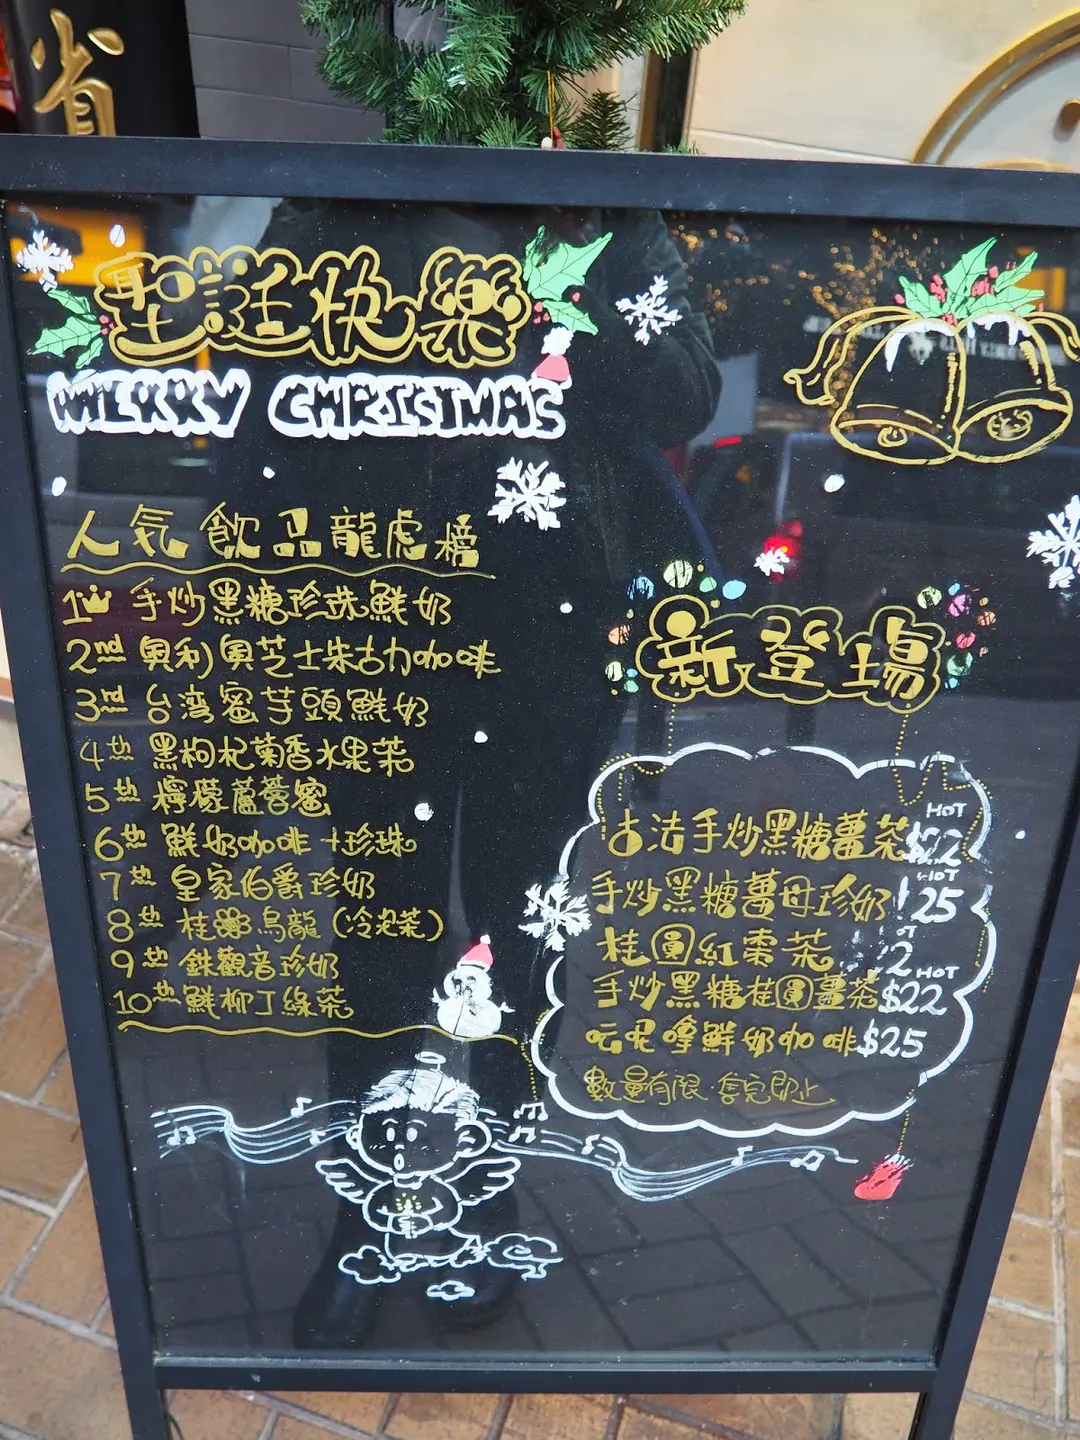 省
聖誕快樂
MERRY CHRISTMAS
人気飲品龍虎榜
1 手炒黑糖珍珠鮮奶
2nd 奧利奧芝士朱古力咖啡
3rd 台湾蜜芋頭鮮奶
4th 黑枸杞菊香水果茶
5th 檸檬蘆薈蜜
6th 鮮奶咖啡+珍珠
7th 皇家伯爵珍奶
8th 桂花烏龍(冷泡茶)
9th 鉄觀音珍奶
10th 鮮柳丁綠茶
新登場
HOT
古法手炒黑糖薑茶$22
HOT
手炒黑糖薑母珍奶 25
桂圓紅棗茶 2
HOT
手炒黑糖桂圓薑茶$22
鮮奶咖啡$25
數量有限 售完即止